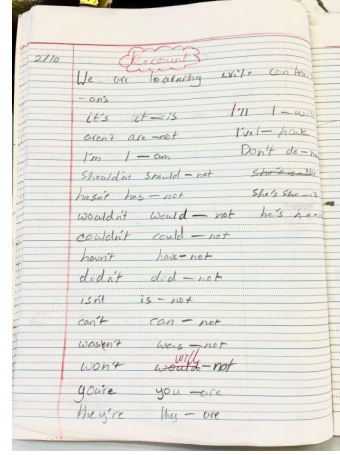 2/10 Recount
We are learning write contra
-ons
it's it-is I'll I-will
aren't are-not I've I-have
I'm I-am Don't do-no
Shouldn't should-not
hasn't has-not she's she-is
wouldn't would-not he's he-
couldn't could-not
havn't have-not
didn't did-not
isnt is-not
can't can-not
wasn't was-not
won't will-not
you're you-are
they're they-are